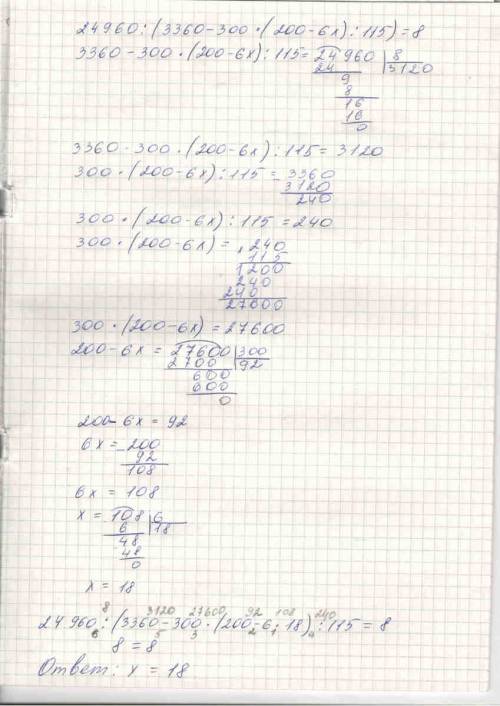 24960:(3360-300·(200-6x):115)=8
3360-300·(200-6x):115= 24960 | 8
24 3120
9
8
16
16
0
3360-300·(200-6x):115=3120
300·(200-6x):115= 3360
3120
240
300·(200-6x):115=240
300·(200-6x)= 240
115
1200
240
240
27600
300·(200-6x)=27600
200-6x= 27600 | 300
2700 92
600
600
0
200-6x=92
6x= 200
92
108
6x=108
x= 108 | 6
6 18
48
48
0
x=18
8 3120 27600 92 108 240
24960:(3360-300·(200-6·18):115=8
6 5 3 2 1 4
8=8
Ответ: x=18